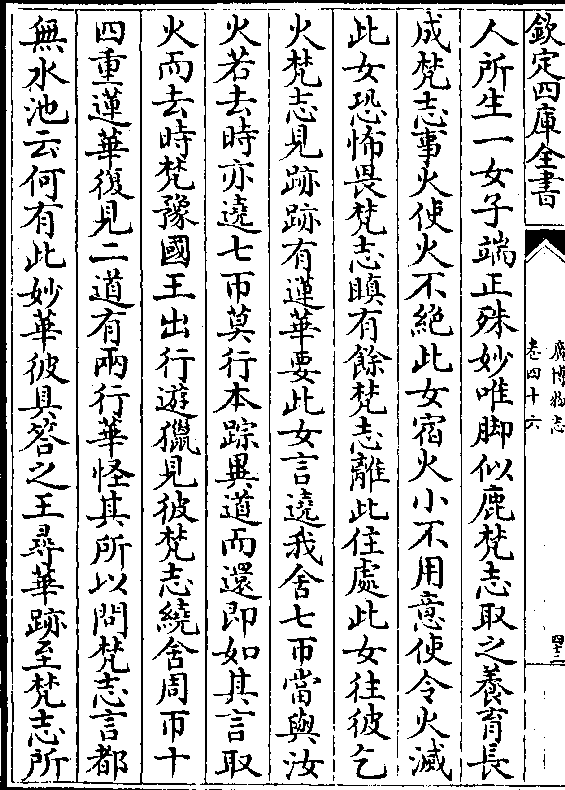 欽定四庫全書
廣博物志
卷四十六
四十二
人所生一女子端正殊妙唯脚似鹿梵志取之養育長
成梵志事火使火不絶此女宿火小不用意使令火滅
此女恐怖畏梵志瞋有餘梵志離此住處此女往彼乞
火梵志見跡跡有蓮華要此女言遶我舍七帀當與汝
火若去時亦遶七帀莫行本踪異道而還即如其言取
火而去時梵豫國王出行遊獵見彼梵志繞舍周帀十
四重蓮華復見二道有兩行華怪其所以問梵志言都
無水池云何有此妙華彼具答之王尋華跡至梵志所